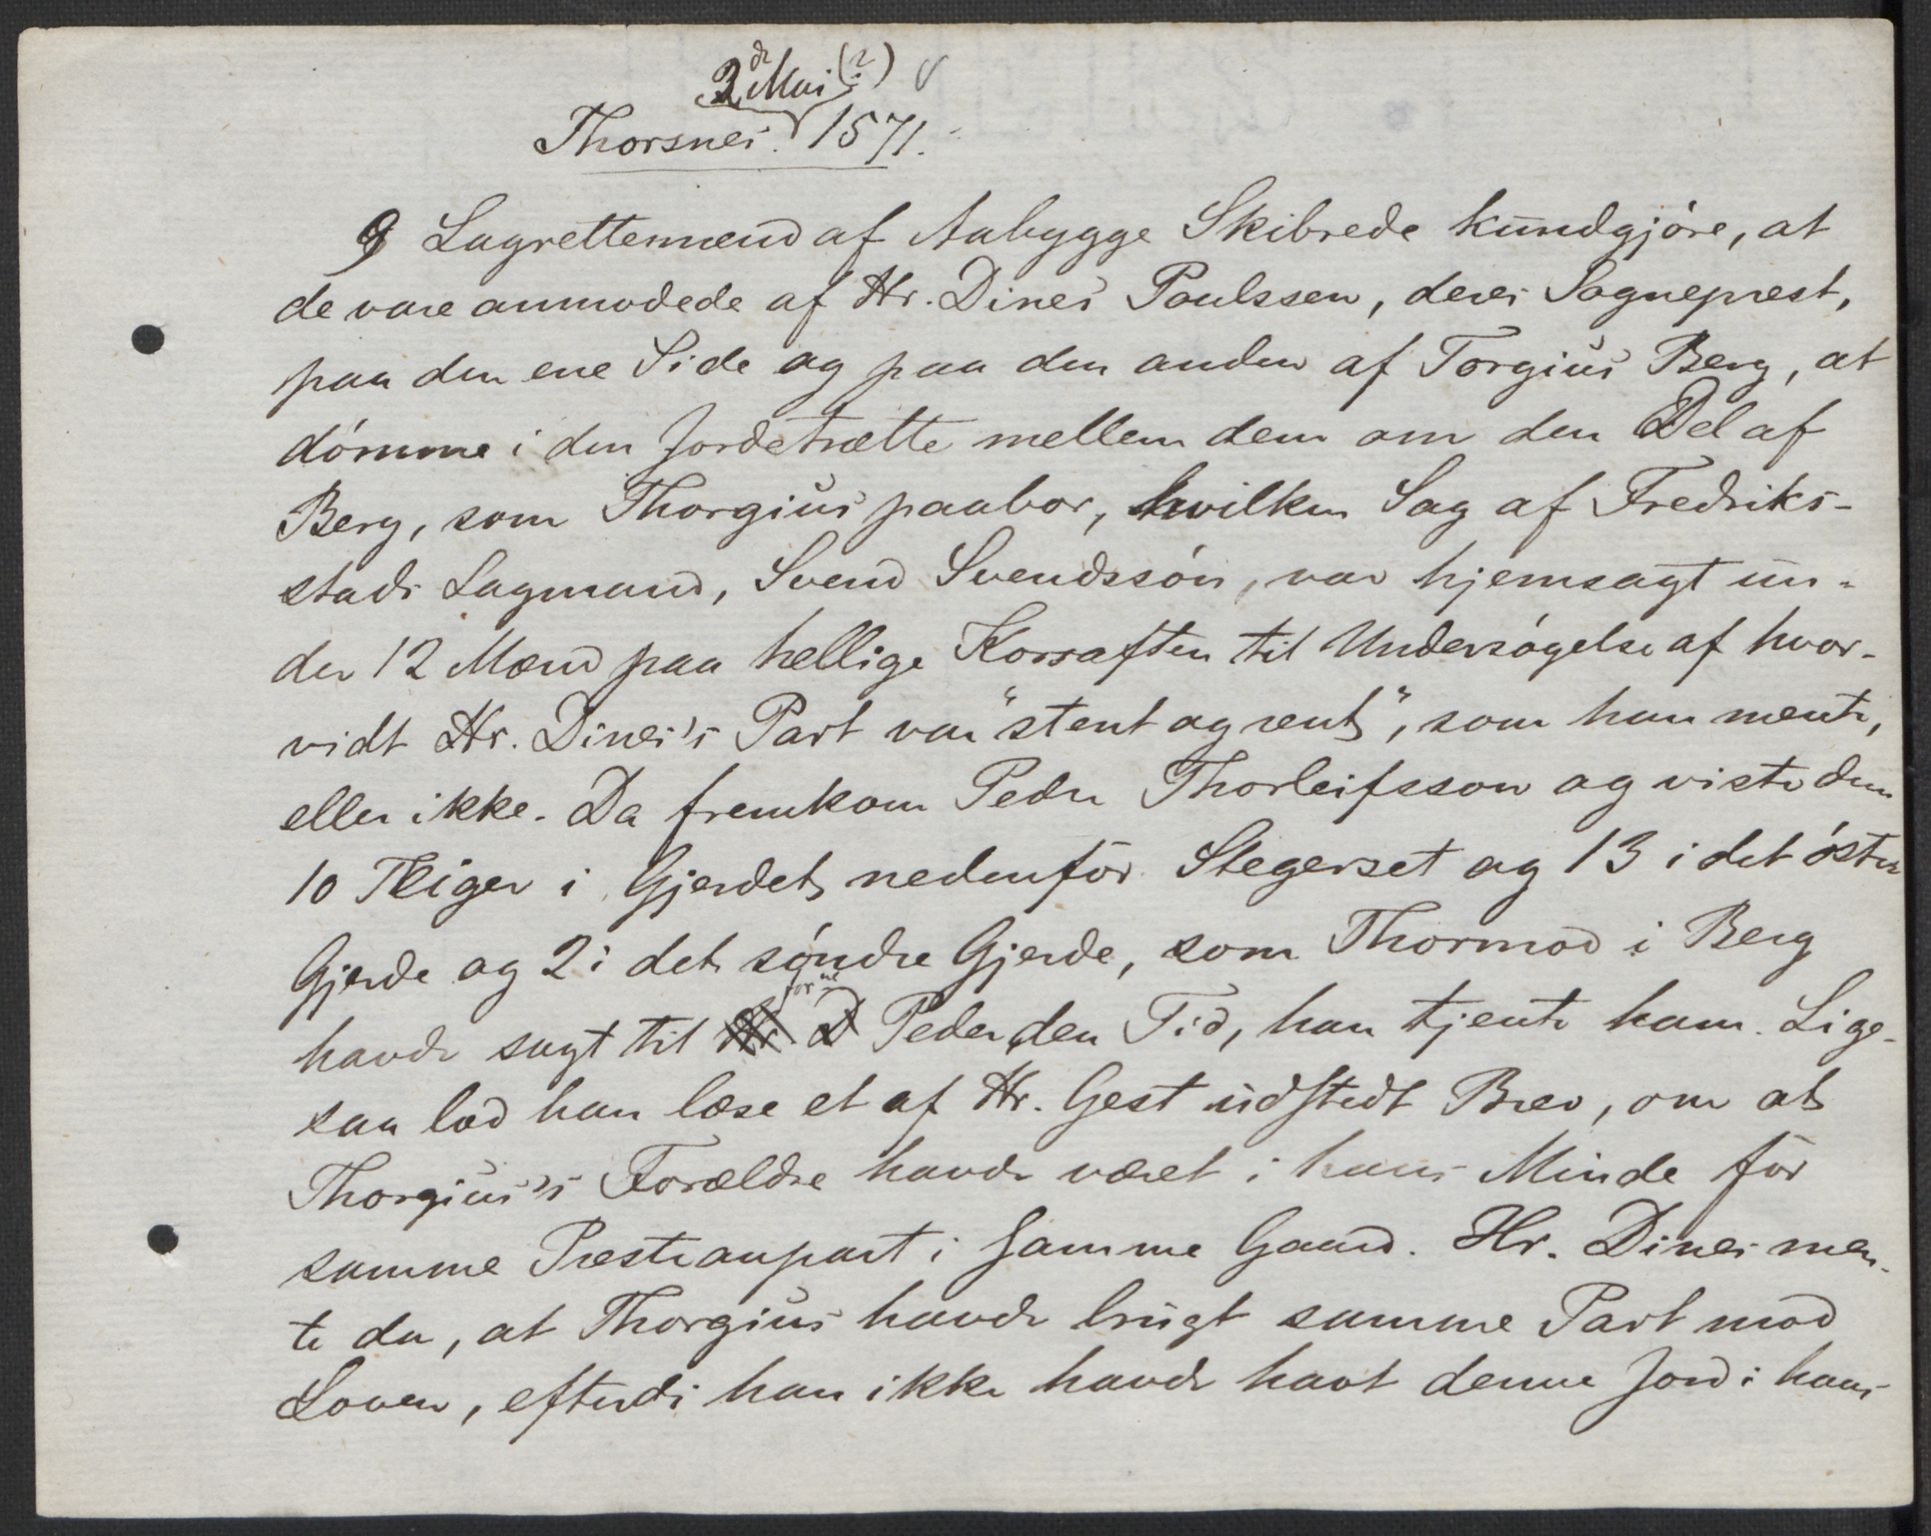 2de Mai (?)
Thorsnes. 1571.
9 Lagrettemænd af Aabygge Skibrede kundgjöre, at
de vare anmodede af Hr. Dines Poulssen, deres Sogneprest,
paa den ene Side og paa den anden af Torgius Berg, at
dömme i den Jordetrætte mellem dem om den Del af
Berg, som Thorgius paabor, hvilken Sag af Fredriks-
stads Lagmand, Svend Svendssön, var hjemsagt un-
der 12 Mænd paa hellige Korsaften til Undersögelse af hvor-
vidt Hr. Dines's Part var "stent og rent", som han mente,
eller ikke. Da fremkom Peder Thorleifsson og viste dem
10 Teiger i Gjerdet nedenfor Stegerset og 13 i det östre
Gjerde og 2 i det söndre Gjerde, som Thormod i Berg
havde sagt til Peder den Tid, han tjente ham. Lige-
saa lod han læse et af Hr. Gest udstedt Brev, om at
Thorgius's Forældre havde været i hans Minde for
samme Presteanpart i samme Gaard. Hr. Dines men-
te da, at Thorgius havde brugt samme Part mod
Loven, efterdi han ikke havde havt denne Jord i hans